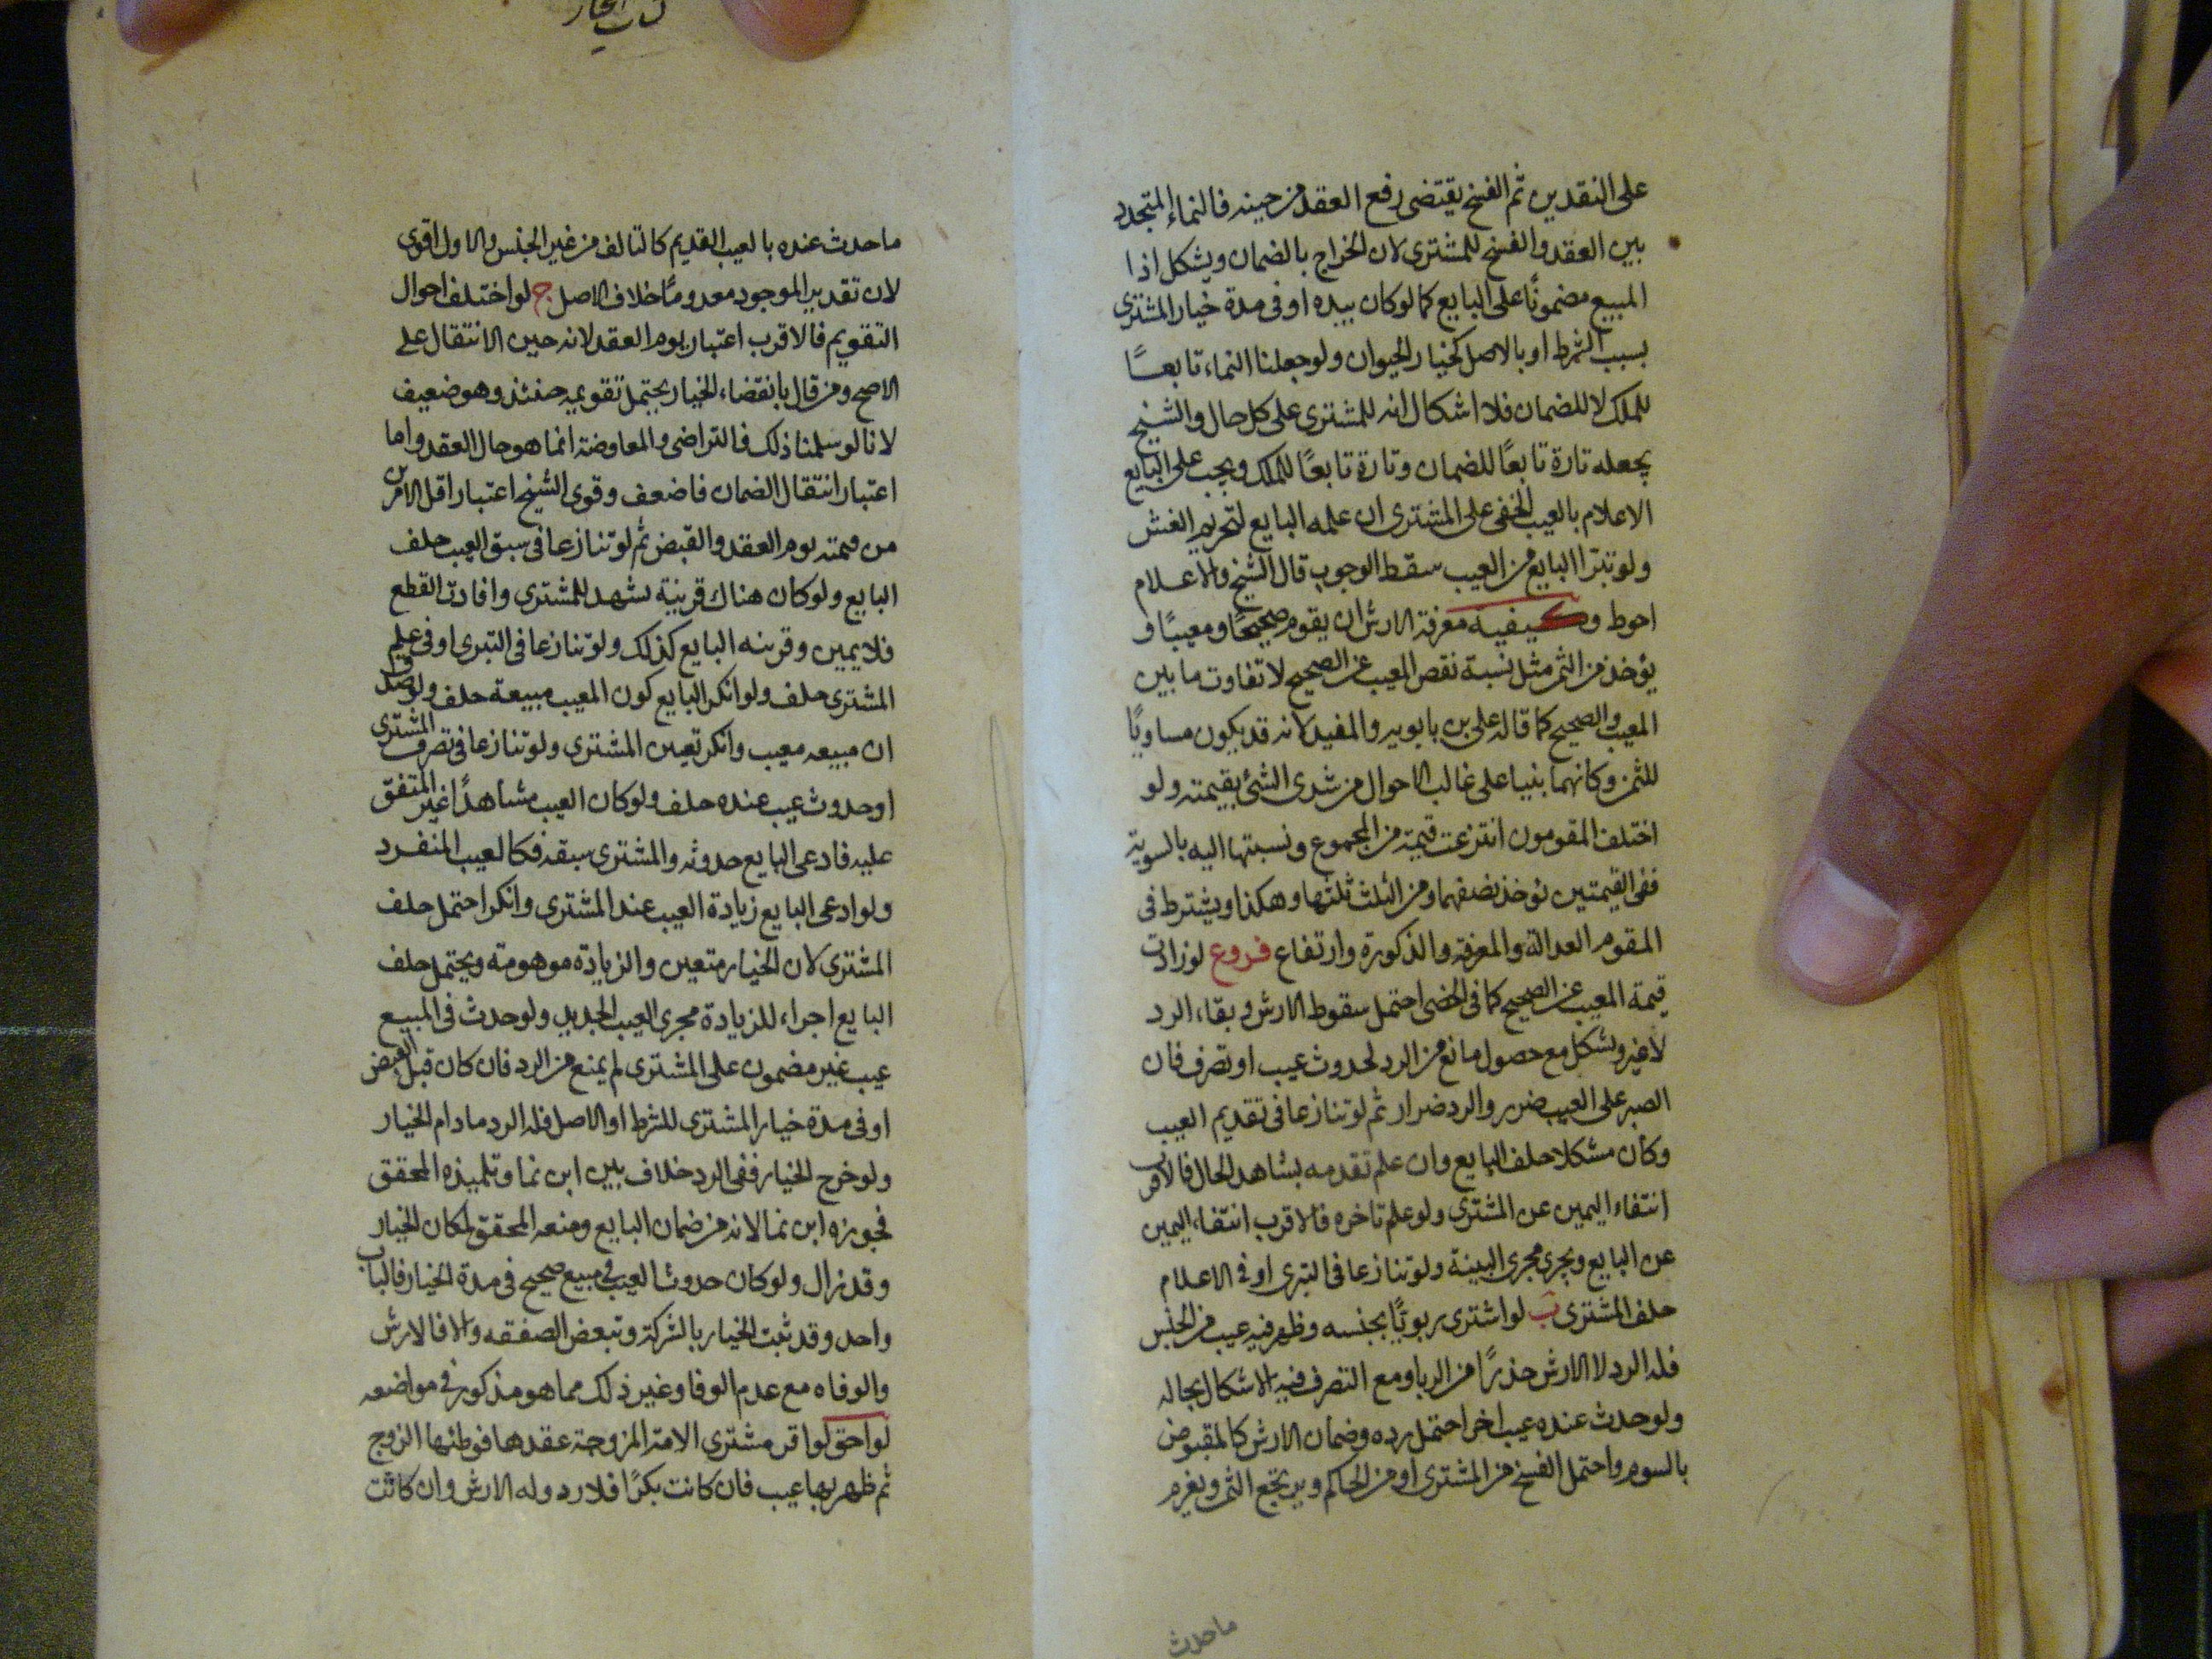 على النقدين ثم الفسخ يقتضى رفع العقد من حينه فالنماء المتجدد
بين العقد والفسخ للمشترى لان الخراج بالضمان ويشكل اذا
المبيع مضمونًا على البايع كما لو كان بيده او فى مدة خيار المشترى
بسبب الشرط او بالاصل كخيار الحيوان ولو جعلنا النماء تابعًا
للملك لا للضمان فلا اشكال انه للمشترى على كل حال والشيخ
يجعله تارة تابعًا للضمان وتارة تابعًا للملك ويجب على البايع
الاعلام بالعيب الخفى على المشترى ان علمه البايع لتحريم الغش
ولو تبرّا البايع من العيب سقط الوجوب قال الشيخ والاعلام
احوط وكيفية معرفة الارش ان يقوم صحيحًا ومعيبًا و
يؤخذ من الثمن مثل نسبة نقص المعيب عن الصحيح لا تفاوت ما بين
المعيب والصحيح كما قاله على بن بابويه والمفيد لانه قد يكون مساويًا
للثمن وكانهما بنيا على غالب الاحوال من شرى الشئ بقيمته ولو
اختلف المقومون انتزعت قيمة من المجموع ونسبتها اليه بالسوية
ففى القيمتين يؤخذ نصفهما ومن الثلث ثلثها وهكذا ويشترط فى
المقوم العدالة والمعرفة والذكورة وارتفاع فروع لو زادت
قيمة المعيب عن الصحيح كما فى الخصى احتمل سقوط الارش وبقاء الرد
لا غير ويشكل مع حصول مانع من الرد لحدوث عيب او تصرف فان
الصبر على العيب ضرر والرد ضرار ثم لو تنازعا فى تقديم العيب
وكان مشكلا حلف البايع وان علم تقدمه بشاهد الحال فالاقرب
انتفاء اليمين عن المشترى ولو علم تاخره فالاقرب انتفاء اليمين
عن البايع ويجرى مجرى البينة ولو تنازعا فى التبرى او فى الاعلام
حلف المشترى ب لو اشترى ربويًّا بجنسه وظهر فيه عيب من الجنس
فله الرد لا الارش حذرًا من الربا ومع التصرف فيه الاشكال بحاله
ولو حدث عنده عيب اخر احتمل رده وضمان الارش كالمقبوض
بالسوم واحتمل الفسخ من المشترى او من الحاكم ويرتجع الثمن ويغرم
ما حدث
كتاب الخيار
ما حدث عنده بالعيب القديم كالتالف من غير الجنس والاول اقوى
لان تقدير الموجود معدومًا خلاف الاصل ج لو اختلف احوال
التقويم فالاقرب اعتبار يوم العقد لانه حين الانتقال على
الاصح ومن قال بانقضاء الخيار يحتمل تقويمه حنئذ وهو ضعيف
لانا لو سلمنا ذلك فالتراضى والمعاوضة انما هو حال العقد واما
اعتبار انتقال الضمان فاضعف وقوى الشيخ اعتبار اقل الامرين
من قيمته يوم العقد والقبض ثم لو تنازعا فى سبق العيب حلف
البايع ولو كان هناك قرينة تشهد للمشترى وافادت القطع
فلا يمين وقرينه البايع كذلك ولو تنازعا فى التبرى او فى علم
المشترى حلف ولو انكر البايع كون المعيب مبيعة حلف ولو صدق
ان مبيعه معيب وانكر تعيين المشترى ولو تنازعا فى تصرف المشترى
او حدوث عيب عنده حلف ولو كان العيب مشاهدًا غير المتفق
عليه فادعى البايع حدوثه والمشترى سبقه فكالعيب المنفرد
ولو ادعى البايع زيادة العيب عند المشترى وانكر احتمل حلف
المشترى لان الخيار متعين والزيادة موهومة ويحتمل حلف
البايع اجراء للزيادة مجرى العيب الجديد ولو حدث فى المبيع
عيب غير مضمون على المشترى لم يمنع من الرد فان كان قبل القبض
او فى مدة خيار المشترى للشرط او الاصل فله الرد ما دام الخيار
ولو خرج الخيار ففى الرد خلاف بين ابن نما وتلميذه المحقق
فجوزه ابن نما لانه من ضمان البايع ومنعه المحقق لمكان الخيار
وقد زال ولو كان حدوث العيب فى مبيع صحيح فى مدة الخيار فالباب
واحد وقد ثبت الخيار بالشركة وتبعض الصفقه والافالارش
والوفاه مع عدم الوفا وغير ذلك مما هو مذكور فى مواضعه
لواحق لو اقر مشترى الامة المزوجة عقدها فوطئها الزوج
ثم ظهر بها عيب فان كانت بكرًا فلا رد وله الارش وان كانت